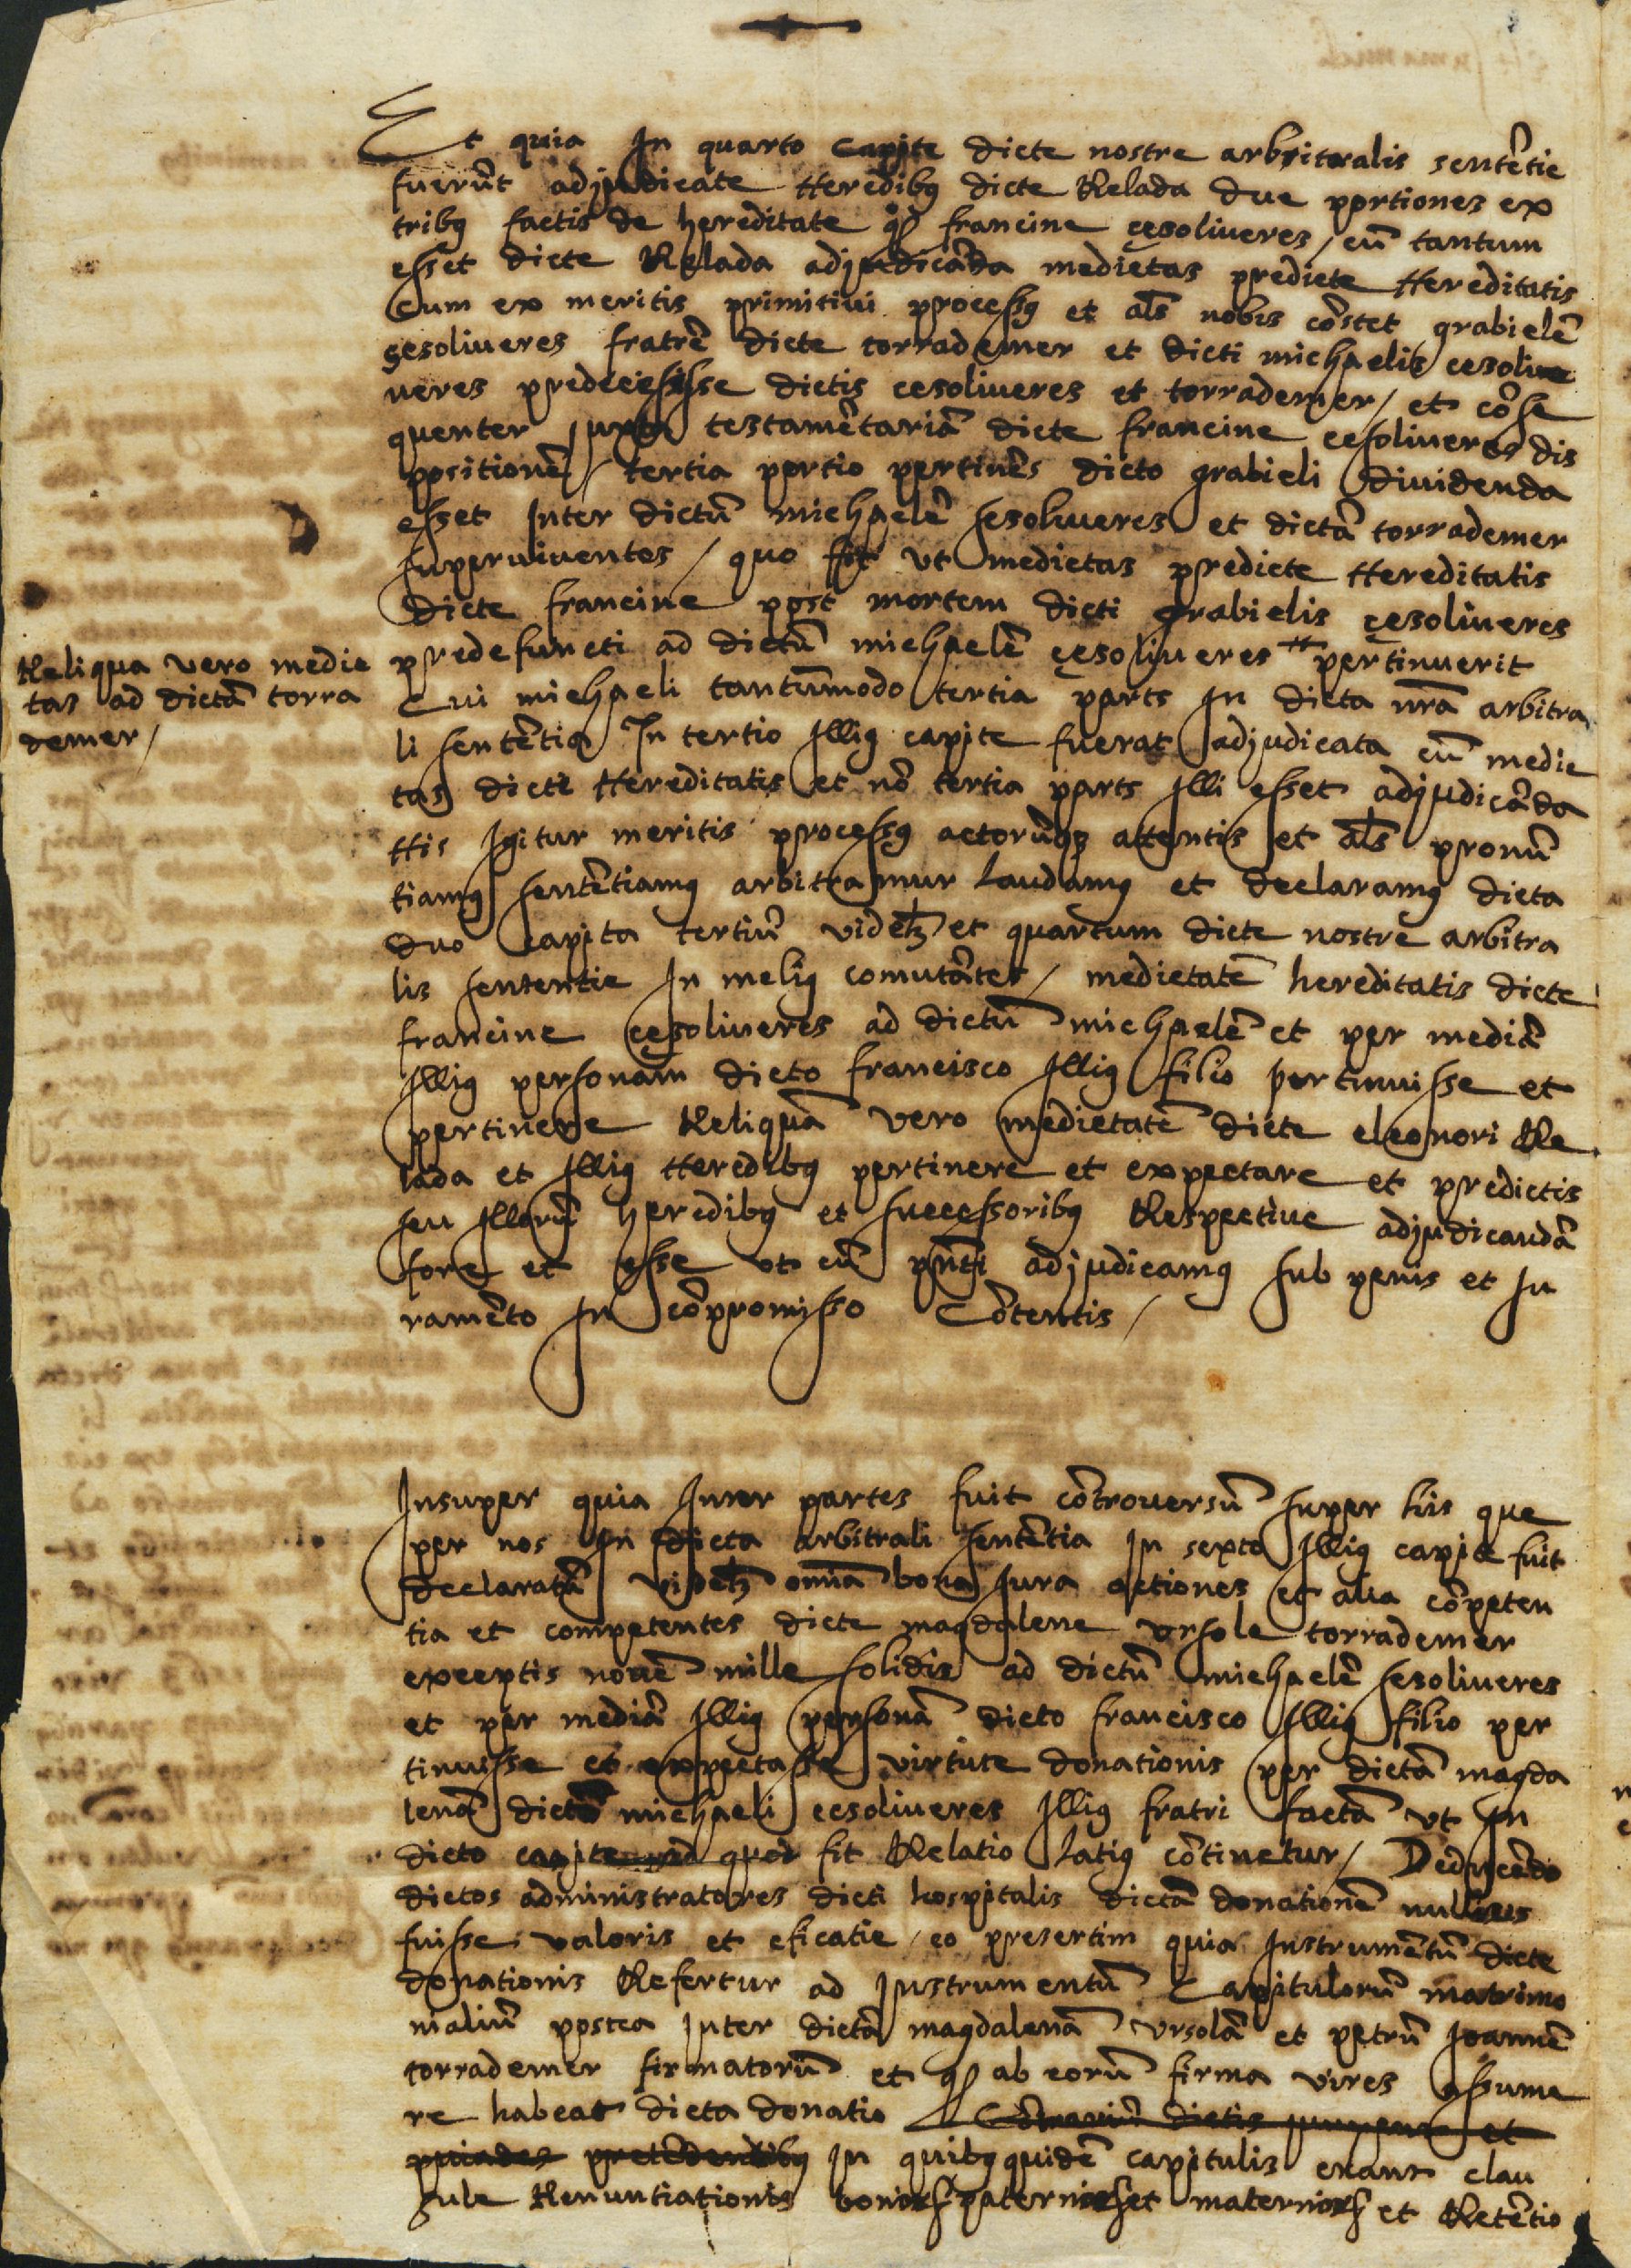 Et quia In quarto capite dicte nostre arbitralis sentẽtie
fuerũt adjudicate Heredibꝰ dicte Relada due portiones ex
tribꝰ factis de hereditate francine çesoliueres / cũ tantum
esset dicte Relada adjudicãda medietas predicte Hereditatis
Cum ex meritis primitiui processꝰ et als̃ nobis cõstet grabielẽ
çesoliueres fratrẽ dicte torrademer et dicti michaelis cesoliue
ueres predecessisse dictis cesoliueres et torrademer / et cõse
quenter juxta testamẽtariã dicte francine cesoliueres dis
positionẽ / tertia portio pertinẽs dicto grabieli diuidenda
esset Inter dictũ michaelẽ sesoliueres et dictã torrademer
superuiuentes / quo fit vt medietas predicte Hereditatis
dicte francine post mortem dicti grabielis çesoliueres
predefuncti ad dictũ michaelẽ çesoliueres pertinuerit
Reliqua vero medie
tas ad dictã torra
demer /
Cui michaeli tantũmodo tertia parts In dicta nrã arbitra
li sentẽtia In tertio Illiꝰ capite fuerat adjudicata cũ medie
tas dicte Hereditatis et nõ tertia parts Illi esset adjudicãda
His Igitur meritis processꝰ actorũqꝫ attentis et als̃ pronũ
tiamꝰ sentẽtiamꝰ arbitramur laudamꝰ et declaramꝰ dicta
duo capita tertiũ videtꝫ et quartum dicte nostre arbitra
lis sententie In meliꝰ comutãtes / medietatẽ hereditatis dicte
francine çesoliueres ad dictũ michaelẽ et per mediã
Illiꝰ personam dicto francisco Illiꝰ filio pertinuisse et
pertinere Reliquã vero medietatẽ dicte eleonori Re
lada et Illiꝰ Heredibꝰ pertinere et expectare et predictis
seu Illorũ heredibꝰ et successoribꝰ Respectiue adjudicandã
fore et esse vt cũ pñti adjudicamꝰ sub penis et Ju
ramẽto In cõpromisso Cõtentis /
Insuper quia Inter partes fuit cõtrouersũ super his que
per nos In dicta arbitrali sentẽtia In sexto Illiꝰ capite fuit
declaratũ videtꝫ omĩa bona Jura actiones et alia cõpeten
tia et competentes dicte magdalene vrsole torrademer
exceptis nouẽ mille solidis ad dictũ michaelẽ sesoliueres
et per mediã Illiꝰ personã dicto francisco Illiꝰ filio per
tinuisse et expectasse virtute donationis per dictã magda
lenã dicto michaeli cesoliueres Illiꝰ fratri factã vt In
dicto capite quod fit Relatio latiꝰ cõtinetur / Deducẽdo
dictos administratores dicti hospitalis dictã donationẽ nullius
fuisse valoris et eficatie / eo presertim quia Instrumẽtũ dicte
donationis Refertur ad Instrumentũ Capitulorũ matrimo
nialiũ postea Inter dictã magdalenã vrsolã et petrũ Joannẽ
torrademer firmatorũ et ab eorũ firma vires assume
re habeat dicta donatio dictis et
pretẽdentibꝰ In quibꝰ quidẽ capitulis erant clau
sule Renuntiationis paternorꝫ et maternorꝫ et Retẽtio